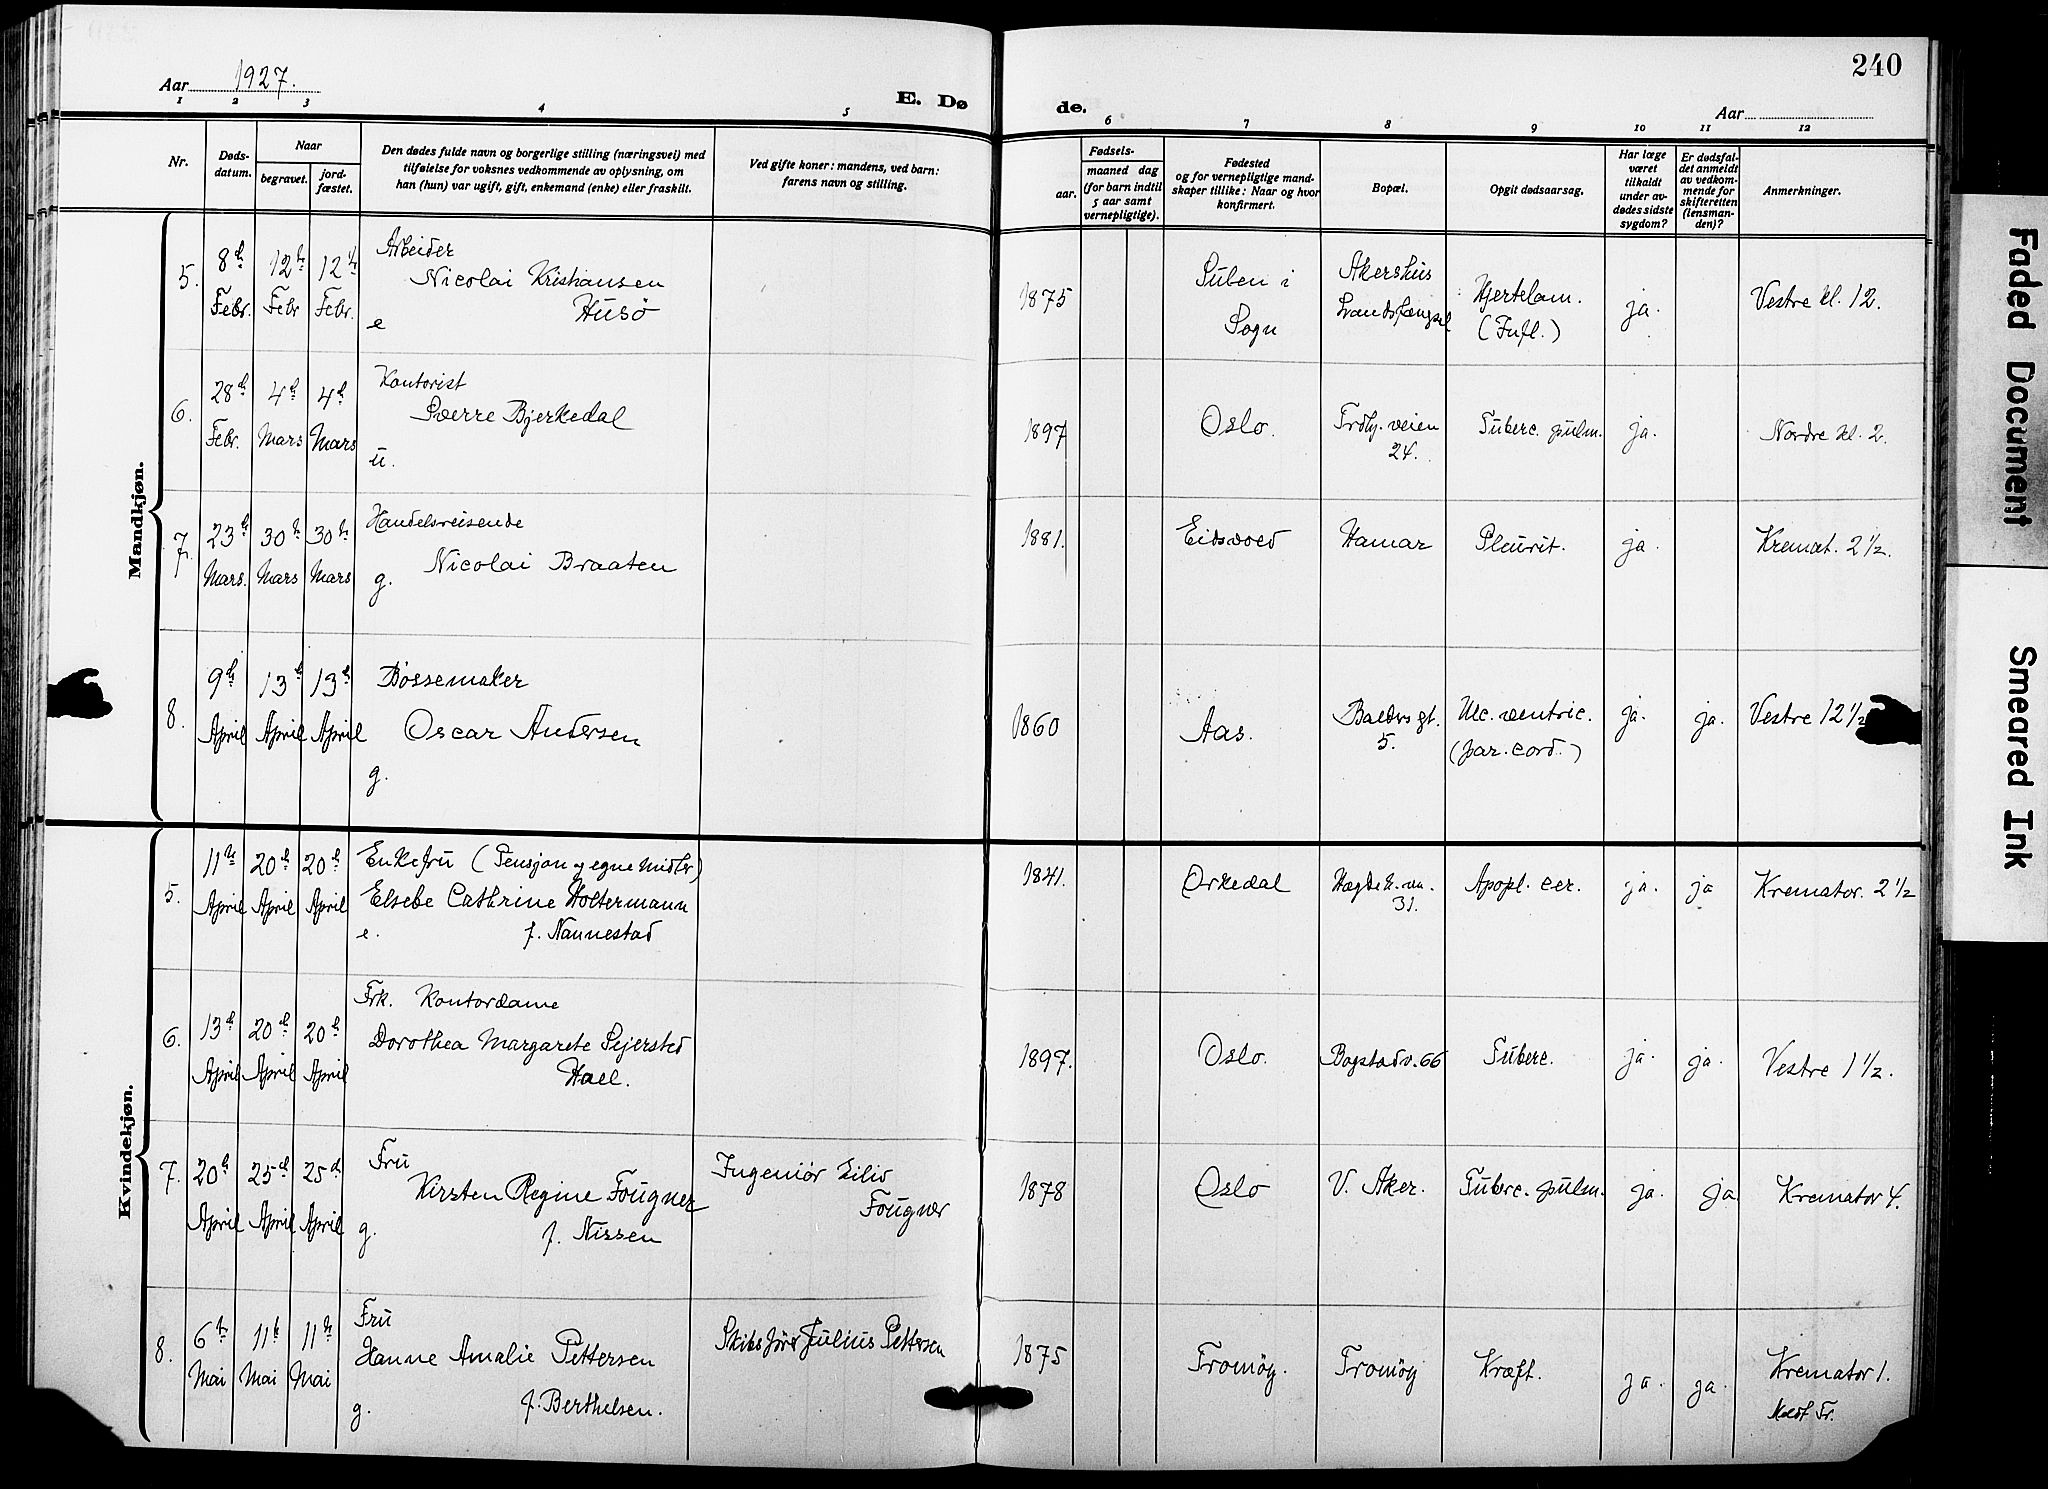 240
Aar 1927.
E. Dø de.
Aar
1 2 3 4 5 6 7 8 9 10 11 12
Nr.
Døds-
datum.
Naar
begravet.
jord-
fæstet.
Den dødes fulde navn og borgerlige stilling (næringsvei) med
tilføielse for voksnes vedkommende av oplysning, om
han (hun) var ugift, gift, enkemand (enke) eller fraskilt.
Ved gifte koner: mandens, ved barn:
farens navn og stilling.
Fødsels-
aar.
maaned dag
(for barn indtil
5 aar samt
vernepligtige).
Fødested
og for vernepligtige mand-
skaper tillike: Naar og hvor
konfirmert.
Bopæl.
Opgit dødsaarsag.
Har læge
været
tilkaldt
under av-
dødes sidste
sygdom?
Er dødsfal-
det anmeldt
av vedkom-
mende for
skifteretten
(lensman-
den)?
Anmerkninger.
Mandkjøn.
5. 8de Febr. 12te Febr 12te Febr.
Arbeider
Nicolai Kristiansen
Husö
e
1875
Suben i
Sogn
Akershus
Landsfængsel
Hjertelam.
(Infl.)
ja.
Vestre kl. 12.
6. 28de Febr. 4de Mars 4de Mars
Kontorist
Sverre Bjerkedal
u.
1897
Oslo.
Trdhj. veien
24.
Tuberc. pulm.
ja.
Nordre kl. 2.
7. 23de Mars. 30te Mars 30te Mars
Handelsreisende
Nicolai Braaten
g.
1881.
Eidsvold
Hamar
Pleurit.
ja.
Kremat. 2 1/2.
8. 9de April 13de April 13de April
Bössemaker
Oscar Andersen
g.
1860
Aas.
Balders gt.
5.
Ulc. ventric.
(par. cord.)
ja. ja.
Vestre 12 1/2
Kvindekjøn.
5. 11te April 20de April 20de April
Enkefru (Pensjon og egne midler)
Elsebe Cathrine Holtermann
e. f. Nannestad
1841.
Orkedal
Hægdeh.vn.
31.
Apopl. cer.
ja. ja
Kremator. 2 1/2
6. 13de April 20de April 20de April
Frk. Kontordame
Dorothea Margarete Sejersted
Hall.
1897.
Oslo
Bogstadv. 66
Tuberc.
ja. ja.
Vestre 1 1/2.
7. 20de April 25de April 25de April
Fru
Kirsten Regine Fougner
g. f. Nissen
Ingeniør Eiliv
Fougner
1878
Oslo
V. Aker.
Tuberc. pulm.
ja. ja
Kremator 4.
8. 6te Mai 11te Mai 11te Mai
Fru
Hanne Amalie Pettersen
g. f. Berthelsen.
Skibsförer Julius Pettersen
1875
Tromöy.
Tromöy
Kræft.
ja. ja.
Kremator 1.
Faded Document
Smeared Ink